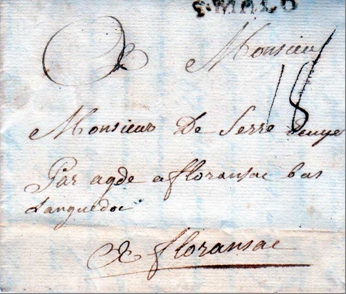 S.MALO
Monsieur
18
Monsieur De Serre
Par agde a floransac bas
Languedoc
A floransac